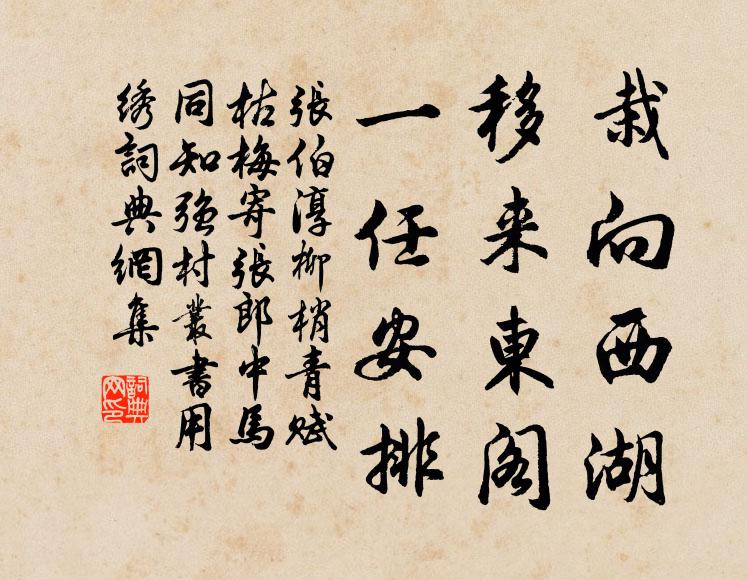 栽向西湖
移来東阁
一任安排
張伯淳柳梢青赋
枯梅寄張郎中馬
同知强村叢書用
绣詞典網集
詞典网印